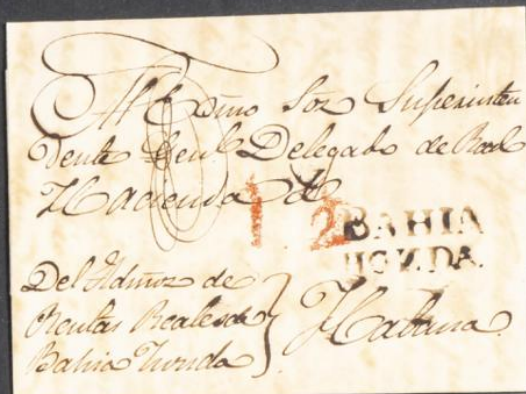 Al Exmo Sor Superinten
dente Genl. Delegado de Real
Hacienda &
1 2
BAHIA
HONDA.
Del Admor de
Rentas Reales de
Bahia Honda
Habana